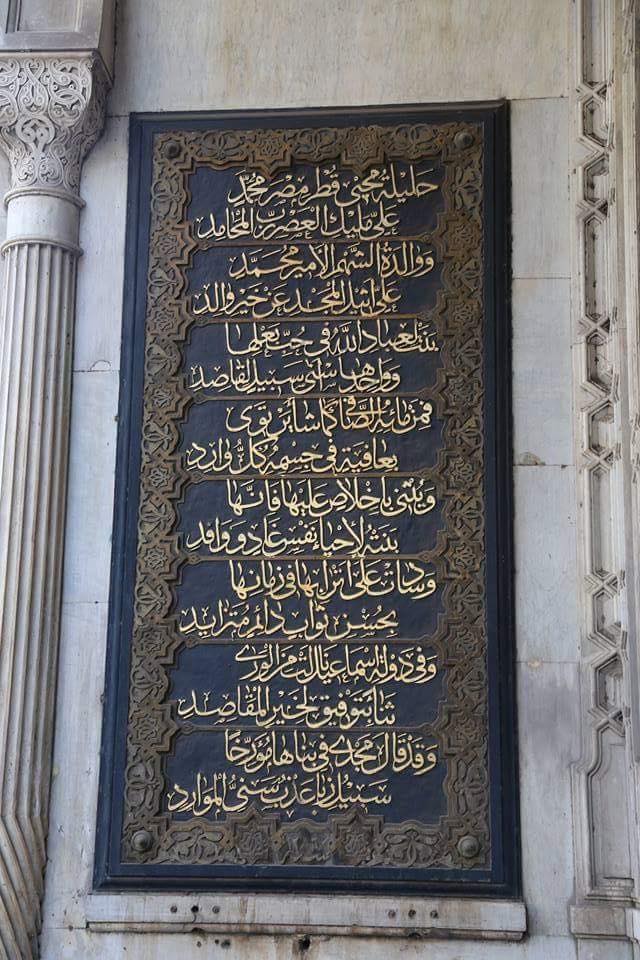 حليلة محيي قطر مصر محمد
علي مليك العصر رب المحامد
ووالدة الشهم الأمير محمد
علي اثيل المجد عن خير والد
بنت لعباد الله في حب بعلها
وواحدها اسنى سبيل لقاصد
فمن مائه الصافي كما شاء يرتوي
بعافية في جسمه كل وارد
ويثني باخلاص عليها فانها
بنته لاحياء نفس غاد ووافد
وسادت على اترابها في زمانها
بحسن ثواب دائم متزايد
وفي دولة اسماعيل نالت من الورى
ثنا بتوفيق لخير المقاصد
وقد قال مجدي في بناها مؤرخا
سبيل عذب سني الموارد